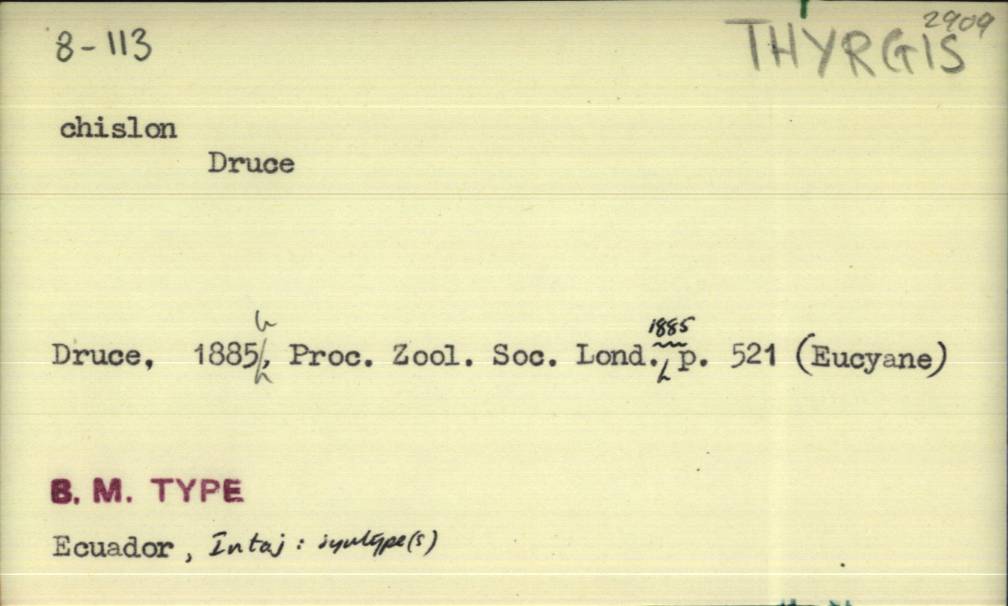 2909
8-113 THYRGIS
chislon
Druce
1885
Druce, 1885, Proc. Zool. Soc. Lond., p. 521 (Eucyane)
B. M. TYPE
Ecuador, Intaj: syntype(s)